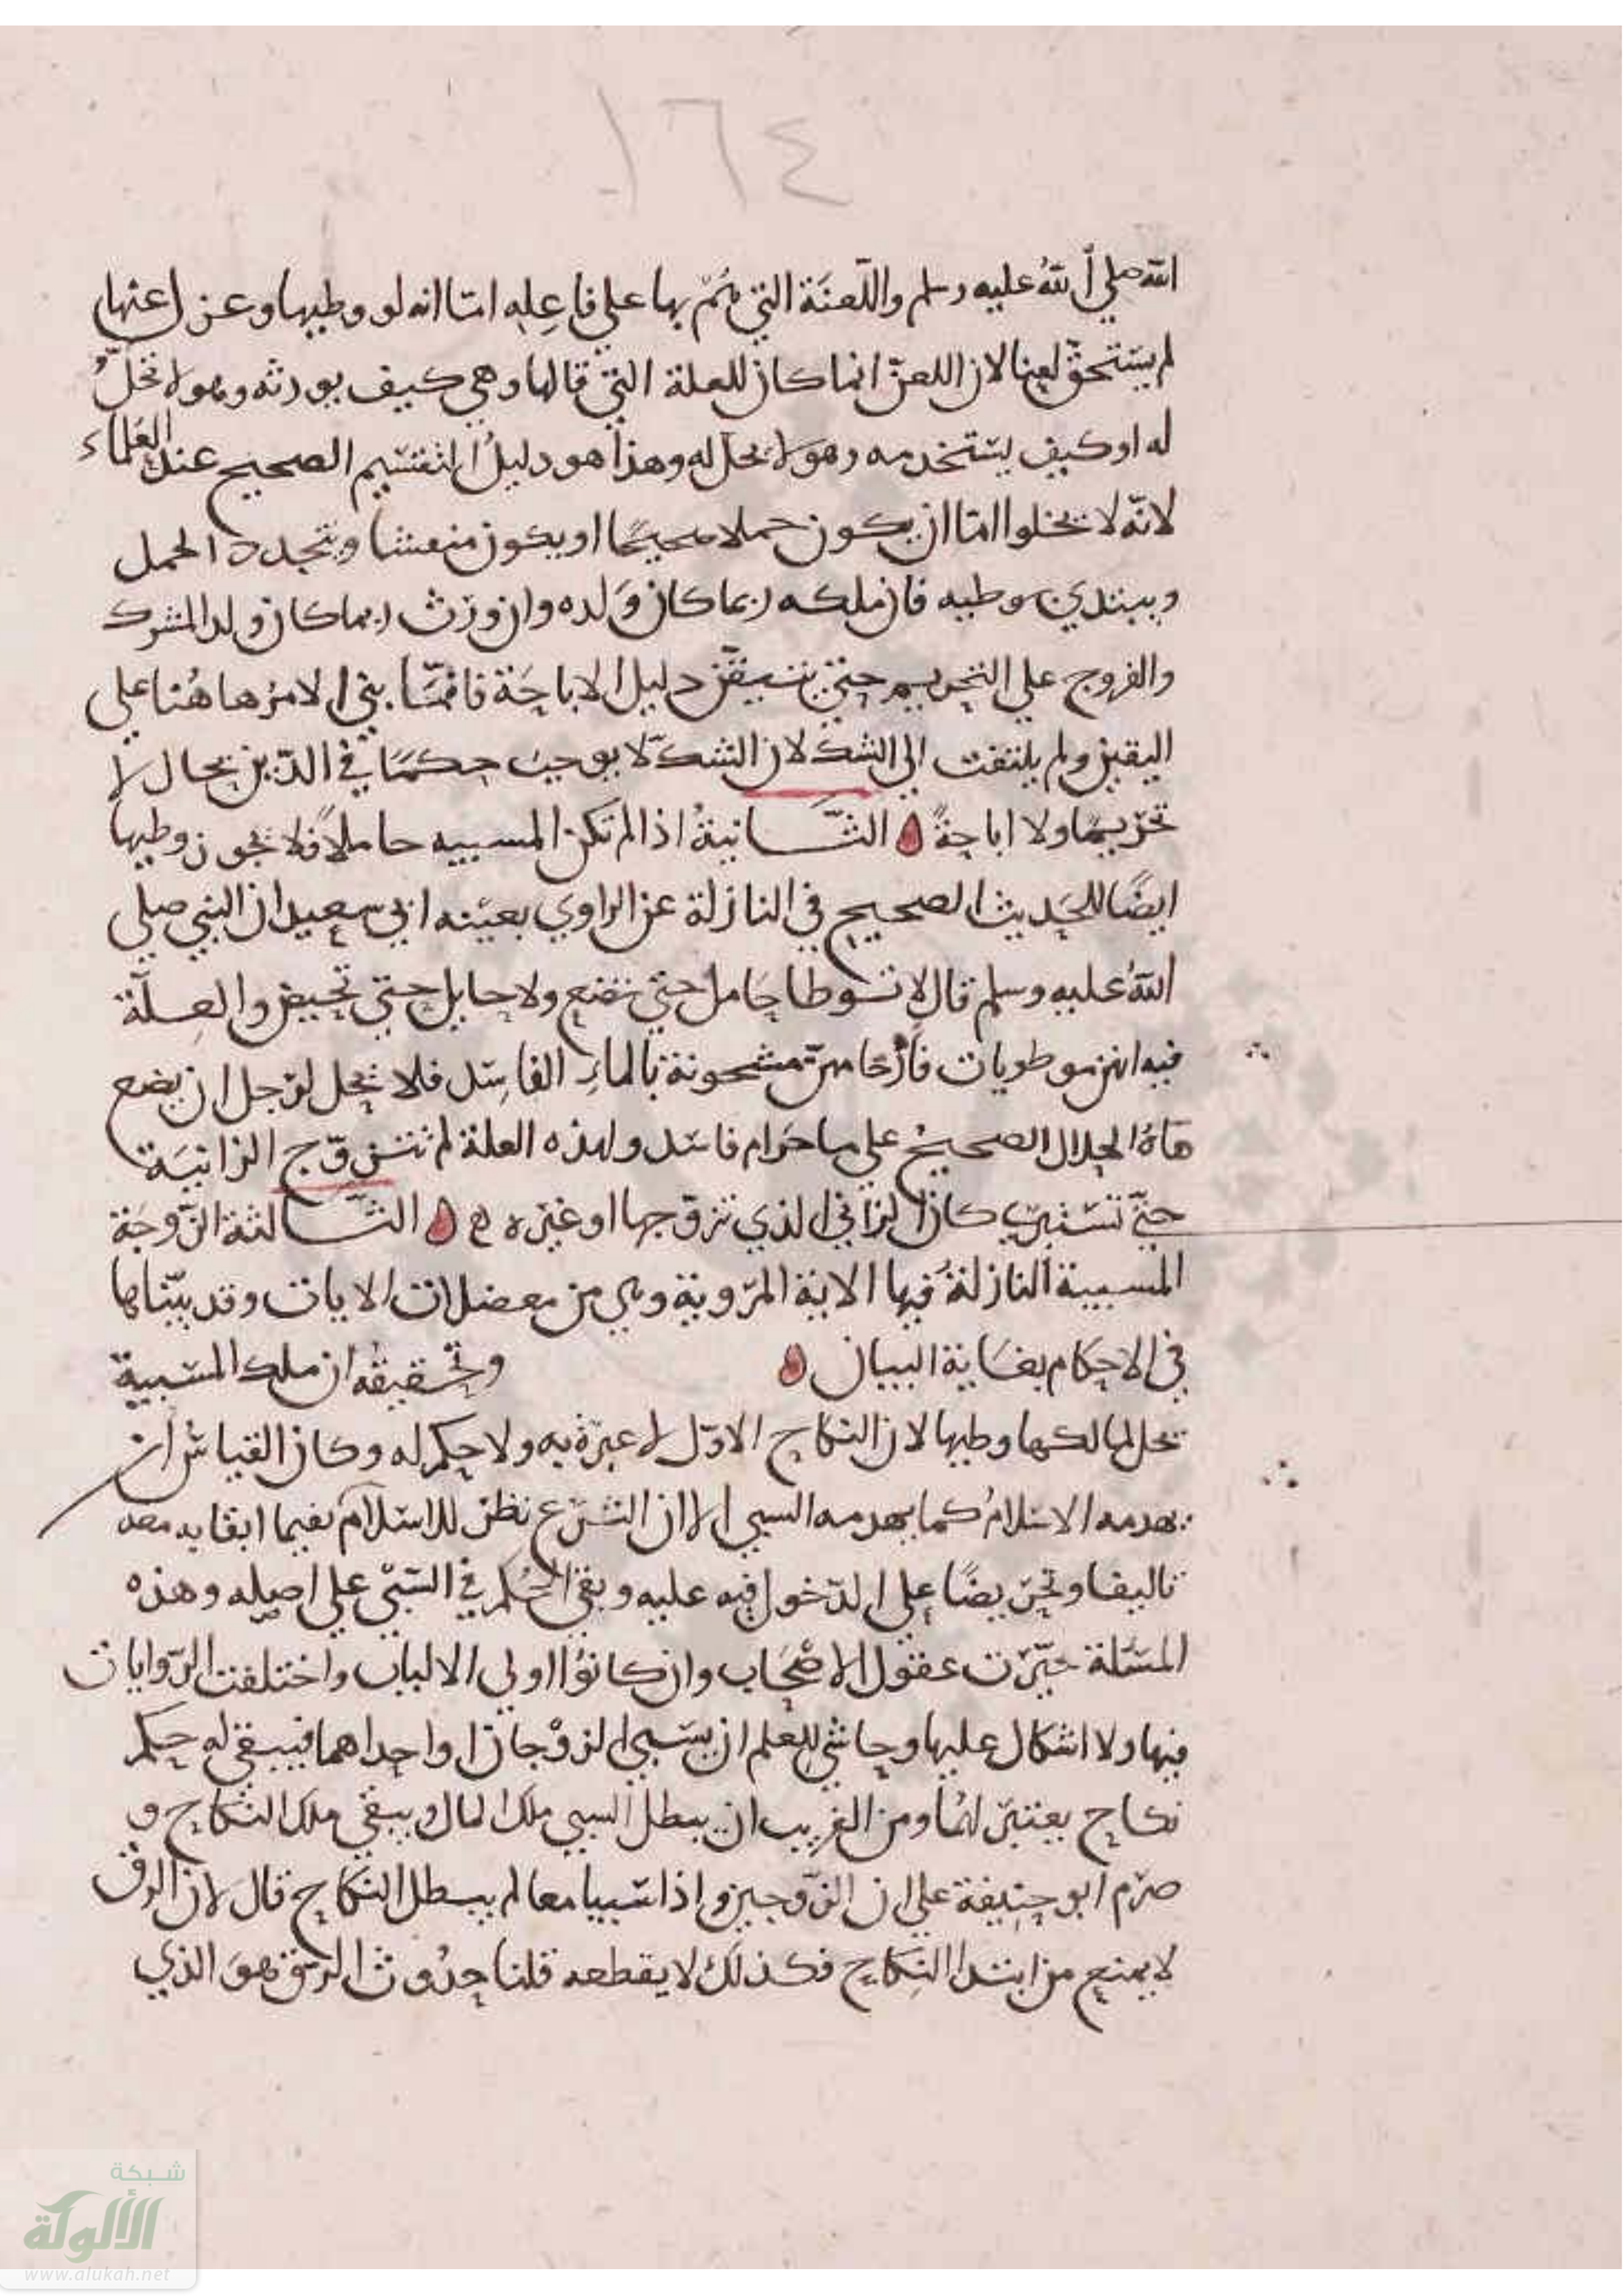 ١٦٤
الله صلي الله عليه وسلم واللّعنَة التي همّ بها علي فاعِلِه امّا انه لو وطيها وعزل عنها
لم يستحقّ لعنا لان اللعنّ انما كان للعلة التي قالها وهي كيف يورثه وهو لا تحلّ
له او كيف يستخدمه وهو لا يحل له وهذا هو دليل التقسيم الصحيح عند العلماء
لانّه لا يخلوا امّا ان يكون حملا صحيحًا او يكون منفشا ويتجدد الحمل
ويبتدي بوطيه فان ملكه ربما كان وَلده وان ورث ربما كان ولد المشرك
والفروج علي التحريم حتي يتيقّن دليل الاباحَة فانّما بني الامرُ هاهُنا علي
اليقين ولم يلتفت الي الشك لان الشكّ لا يوجبُ حكمًا في الدّين بحال لا
تحريمًا ولا اباحةً الثّانيةُ اذا لم تكن المسبيه حاملاً فلا يجوز وطيها
ايضًا للحَديث الصحيح في النازلة عن الراوي بعينه ابي سعيد ان النبي صلي
اللهُ عليه وسلم قال لا توطا حَامل حتي تضع ولا حايل حتي تحيض والعِلّة
فيه انهن موطويات فارحَامهنّ مشحونة بالماءِ الفاسِد فلا يحل لرجل ان يضع
ماءهُ الحلال الصحيحُ علي ما حَرام فاسَد ولهذه العلة لم تتزوّج الزانيَة
حتّي تستبرئ كان الزاني الذي تزوّجها او غيره ه الثّالثة الزّوجَة
المسبية النازلةُ فيها الاية المرّوية وهي من معضلات الايات وقد بيّناها
في الاحكام بغاية البيان وتحقيقهُ ان ملك المسبية
تحل لمالكها وطيها لان النكاح الاوّل لا عبرة به ولا حكم له وكان القياسُ ان
يهدمه الاسلامُ كما يهدمه السبي الا ان الشرع نظر للاسلام بغيما ابقايه معه
تاليفا وتحريضًا علي الدّخول فيه عليه وبقي الحُكم في السّبي علي اصله وهذه
المسَلة حيّرت عقول الاصْحَاب وان كانُوا اولي الالباب واختلفت الرّوايات
فيها ولا اشكال عليها وحاشي للعلم ان يسَبي الزوْجان او احداهما فيبقي له حكم
نكاح يعتبر لهُما ومن الغريب ان يبطل السبي ملك المال ويبقي ملك النكاح و
صرّم ابو حنيفة علي ان الزّوجين واذا سَبيا معا لم يبطل النكاح قال لان الرق
لا يمنع من ابتدا النِكاح فكذلك لا يقطعه قلنا حدُوث الرق هوَ الذي
شبكة
الألوكة
www.alukah.net